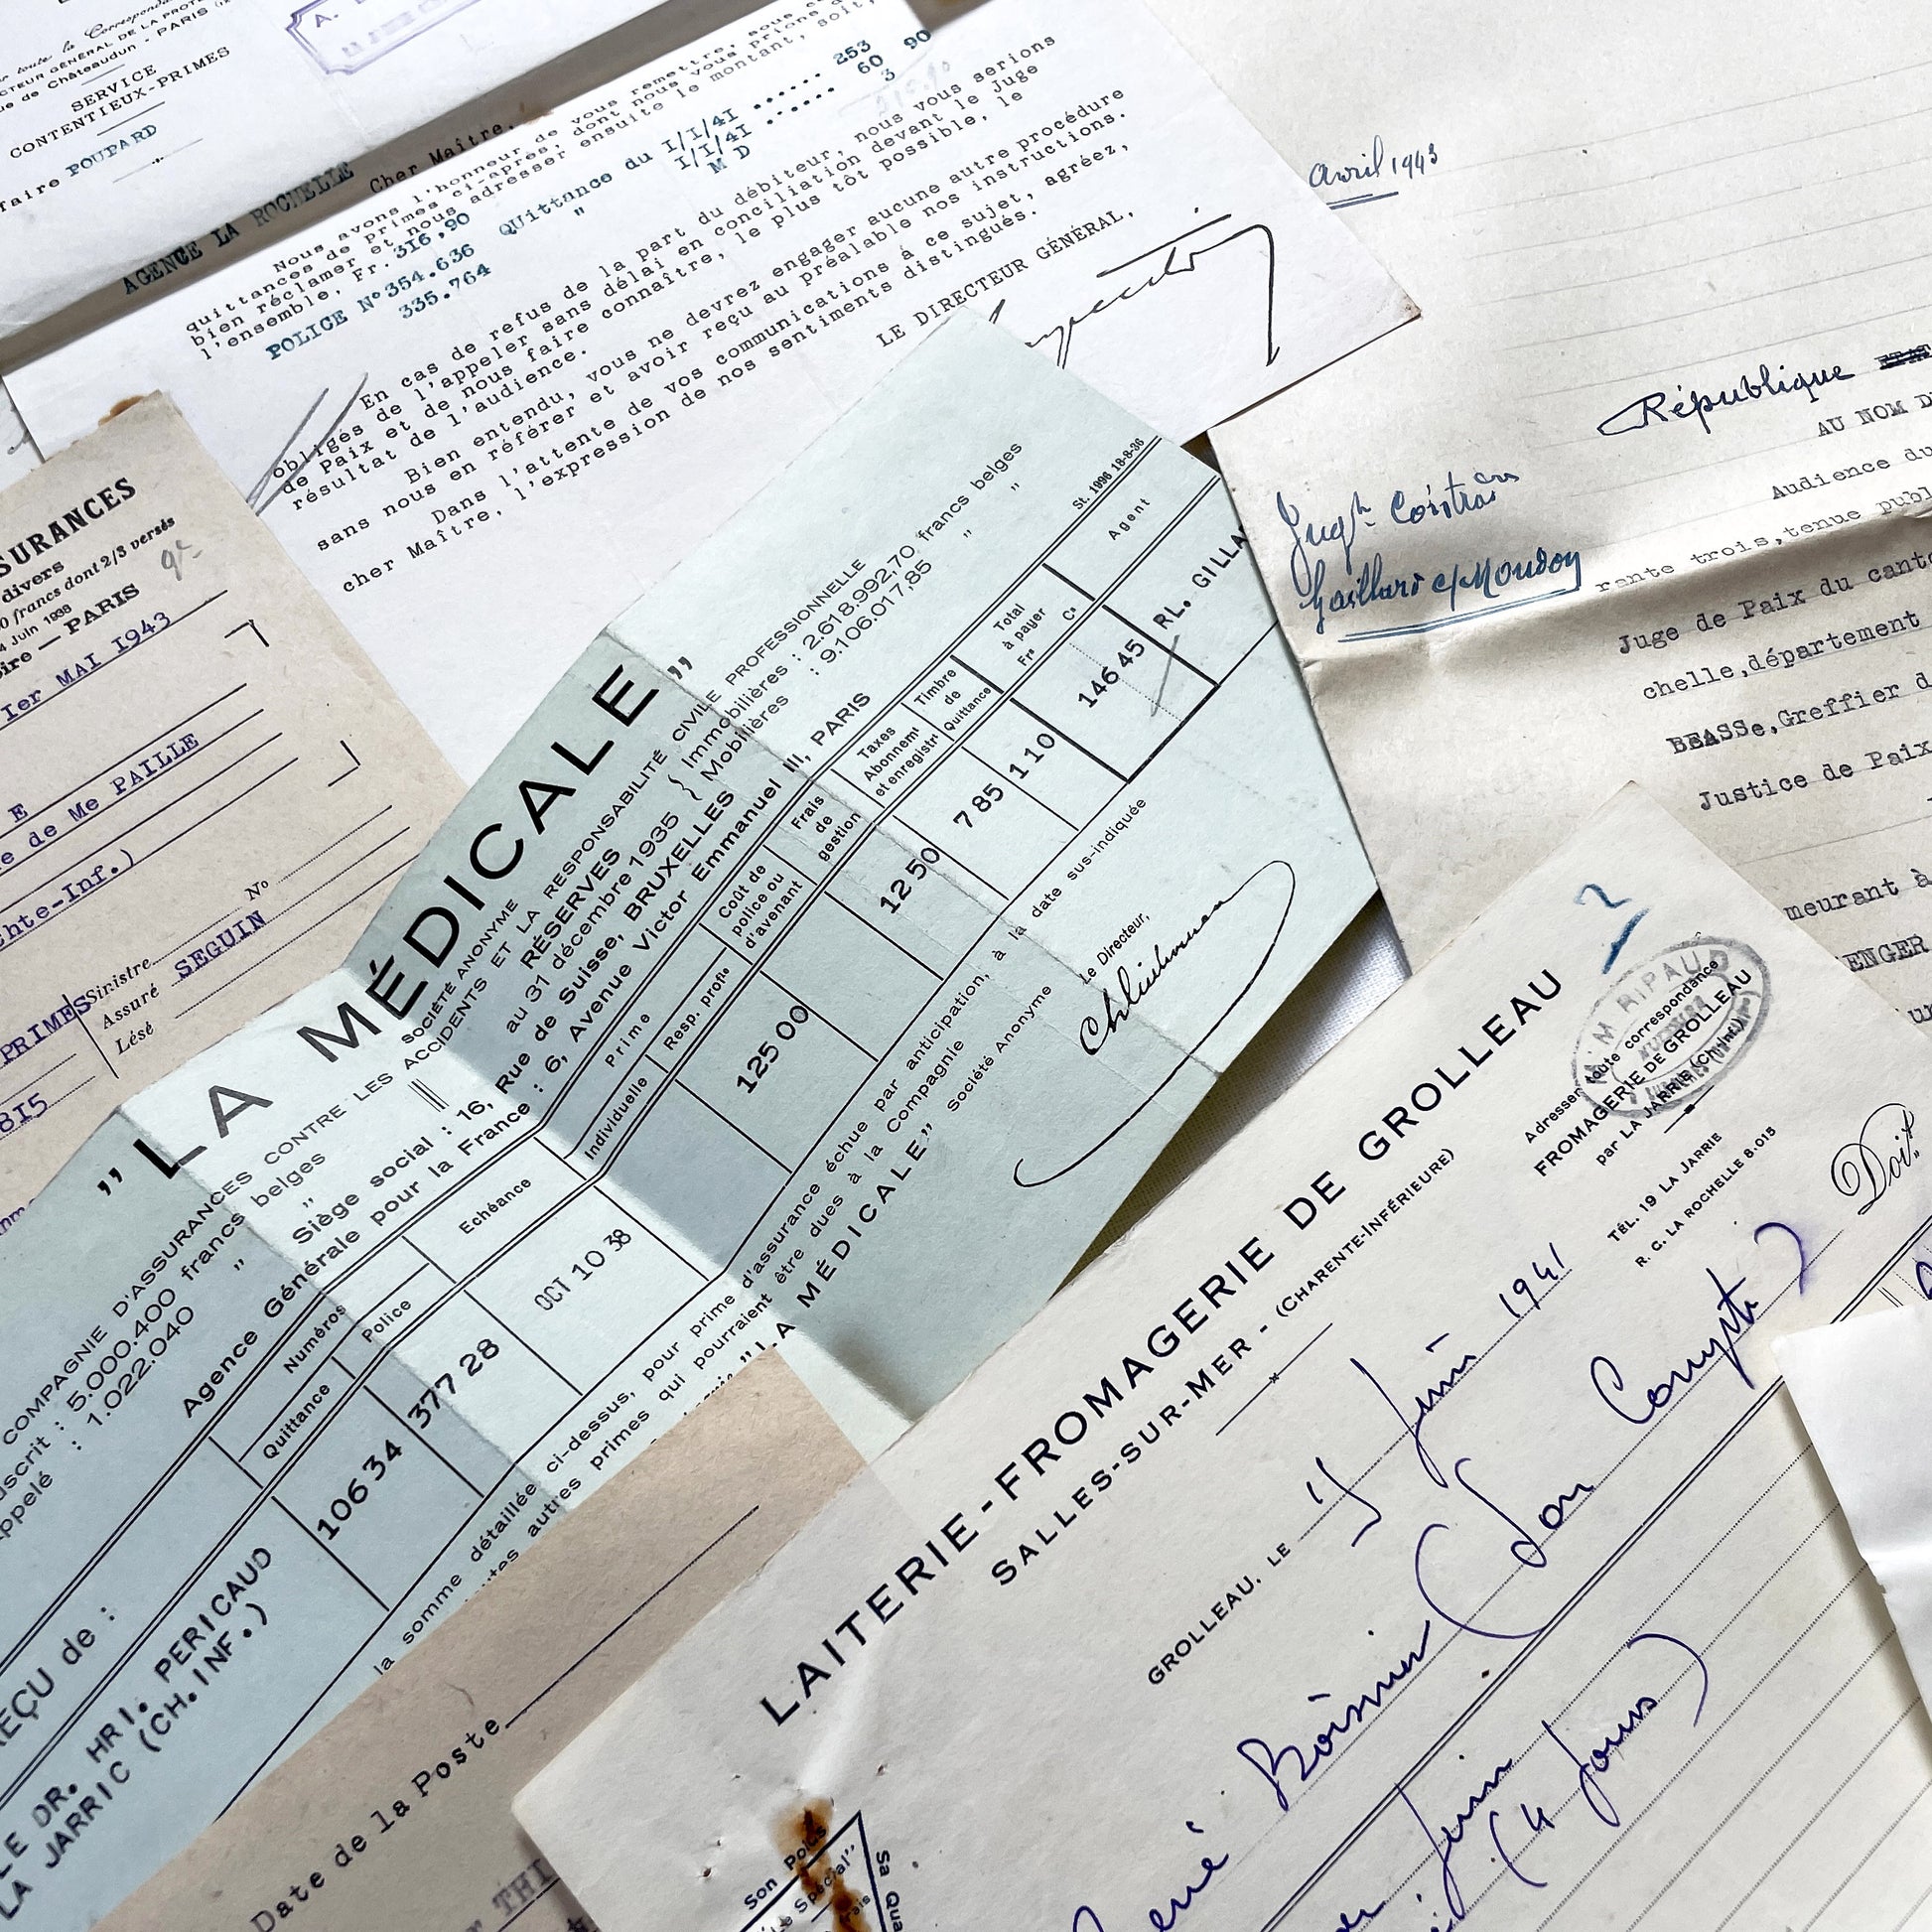 SERVICE
CONTENTIEUX-PRIMES
POUPARD
AGENCE LA ROCHELLE
Cher Maître,
Nous avons l'honneur de vous remettre, sous
quittances de primes ci-après, dont nous vous prions
bien réclamer et nous adresser ensuite le montant, soit,
l'ensemble, Fr. 316,90
POLICE N° 354.636 Quittance du I/I/4I ...... 253
335.764 " I/I/4I ...... 60 90
M D 3
En cas de refus de la part du débiteur, nous vous serions
obligés de l'appeler sans délai en conciliation devant le Juge
de Paix et de nous faire connaître, le plus tôt possible, le
résultat de l'audience.
Bien entendu, vous ne devrez engager aucune autre procédure
sans nous en référer et avoir reçu au préalable nos instructions.
Dans l'attente de vos communications à ce sujet, agréez,
cher Maître, l'expression de nos sentiments distingués.
LE DIRECTEUR GÉNÉRAL,
SURANCES
divers
francs dont 2/3 versés
Juin 1938
PARIS
Ier MAI 1943
E
de Me PAILLE
hte-Inf.)
N°
Sinistre
Assuré SEGUIN
Lésé
PRIMES
815
„LA MÉDICALE”
COMPAGNIE D'ASSURANCES CONTRE LES
SOCIÉTÉ ANONYME
ACCIDENTS ET LA RESPONSABILITÉ CIVILE PROFESSIONNELLE
: 5.000.400 francs belges
: 1.022.040 "
RÉSERVES
au 31 décembre 1935
Immobilières : 2.618.992,70 francs belges
Mobilières : 9.106.017,85 "
Siège social : 16, Rue de Suisse, BRUXELLES
Agence Générale pour la France : 6, Avenue Victor Emmanuel III, PARIS
St. 1996 18-8-36
Numéros
Quittance
Police
Echéance
Prime
Individuelle
Resp. profle
Coût de police ou d'avenant
Frais de gestion
Taxes Abonnemt et enregistrt
Timbre de Quittance
Total à payer Frs Cs
Agent
106 34
377 28
OCT 10 38
125 00
12 50
7 85
1 10
146 45
RL. GILLA
REÇU de :
LE DR. HRI. PERICAUD
LA JARRIC (CH.INF.)
la somme détaillée ci-dessus, pour prime d'assurance échue par anticipation, à la date sus-indiquée
autres primes qui pourraient être dues à la Compagnie
"LA MÉDICALE" Société Anonyme
Le Directeur,
avril 1943
République
AU NOM D
Audience du
rante trois, tenue publ
Juge de Paix du canto
chelle, département
BEASSe, Greffier d
Justice de Paix
meurant à
ENGER
Date de la Poste
LAITERIE-FROMAGERIE DE GROLLEAU
SALLES-SUR-MER - (CHARENTE-INFÉRIEURE)
M. RIPAUD
Adresser toute correspondance
FROMAGERIE DE GROLLEAU
par LA JARRIE (Ch.Inf.)
TÉL. 19 LA JARRIE
R. C. LA ROCHELLE 8.015
GROLLEAU, LE
Juin 1941
Doit
Boisnier (Son Compte)
Juin
(4 jours)
Son Poids
Sa Qua